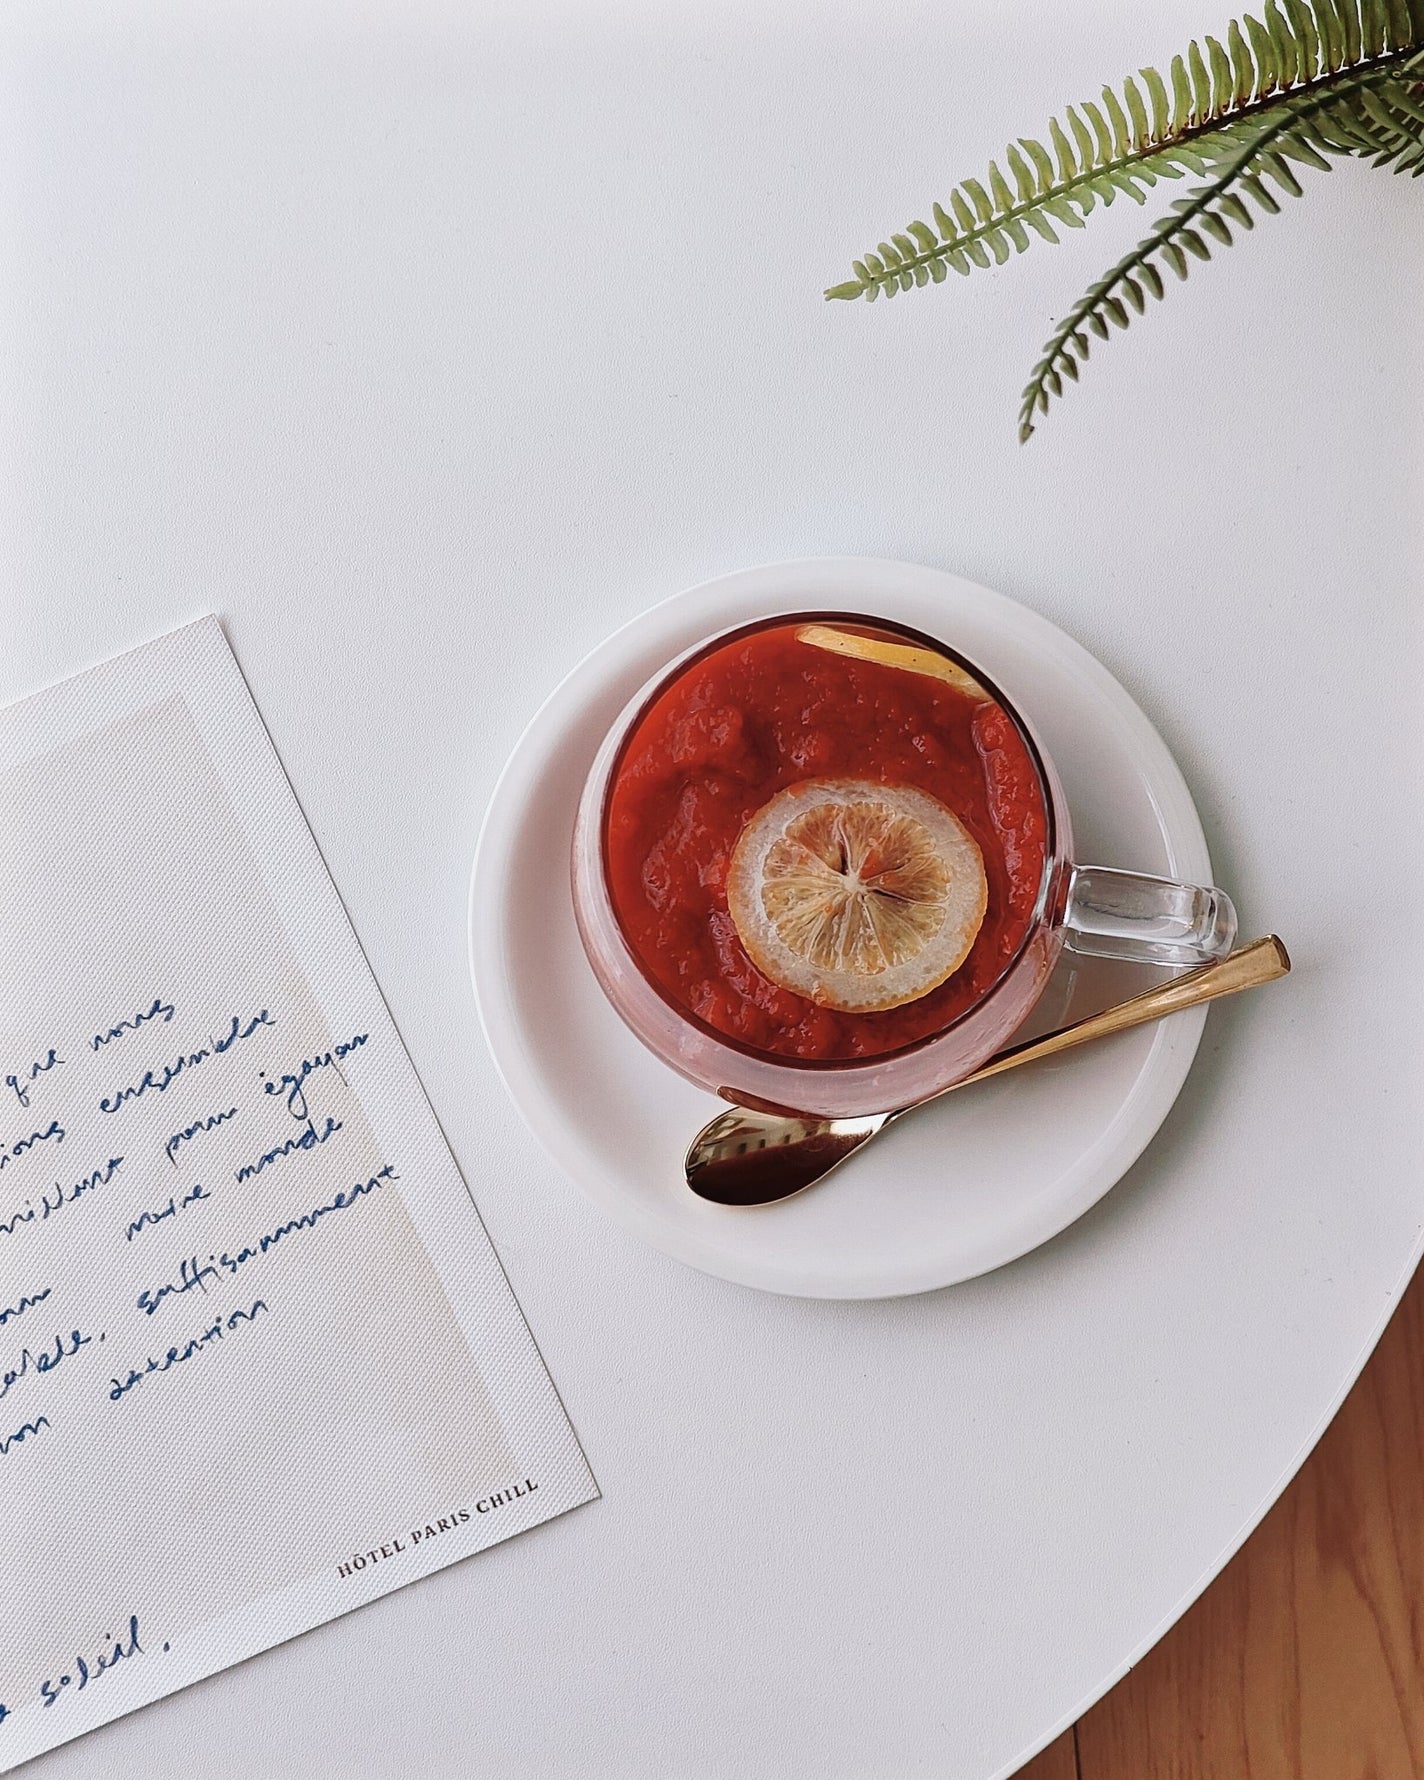 que nous
ions ensemble
millant pour égayer
notre monde
suffisamment
attention
HÔTEL PARIS CHILL
soleil,